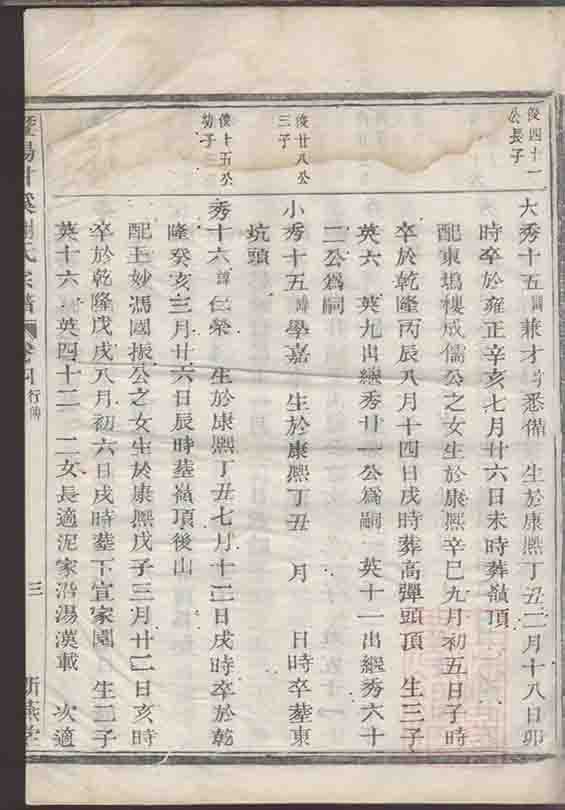 俊四十一
公長子
大秀十五諱兼才字悉備 生於康熙丁丑二月十八日卯
時卒於雍正辛亥七月廿六日未時葬嶺頂
配東塢樓成儒公之女生於康熙辛巳九月初五日子時
卒於乾隆丙辰八月十四日戌時葬高彈頭頂 生三子
英六 英九出繼秀廿一公爲嗣 英十一出繼秀六十
二公爲嗣
俊廿八公
三子
小秀十五諱學嘉 生於康熙丁丑 月 日時卒塟東
坑頭
俊十五公
幼子
秀十六諱仁榮 生於康熙丁丑七月十二日戌時卒於乾
隆癸亥三月廿六日辰時塟嶺頂後山
配王妙馮國振公之女生於康熙戊子三月廿二日亥時
卒於乾隆戊戌八月初六日戌時塟下宣家園 生二子
英十六 英四十二 二女長適泥家沿湯漢載 次適
氏宗譜 卷四 行傳 三